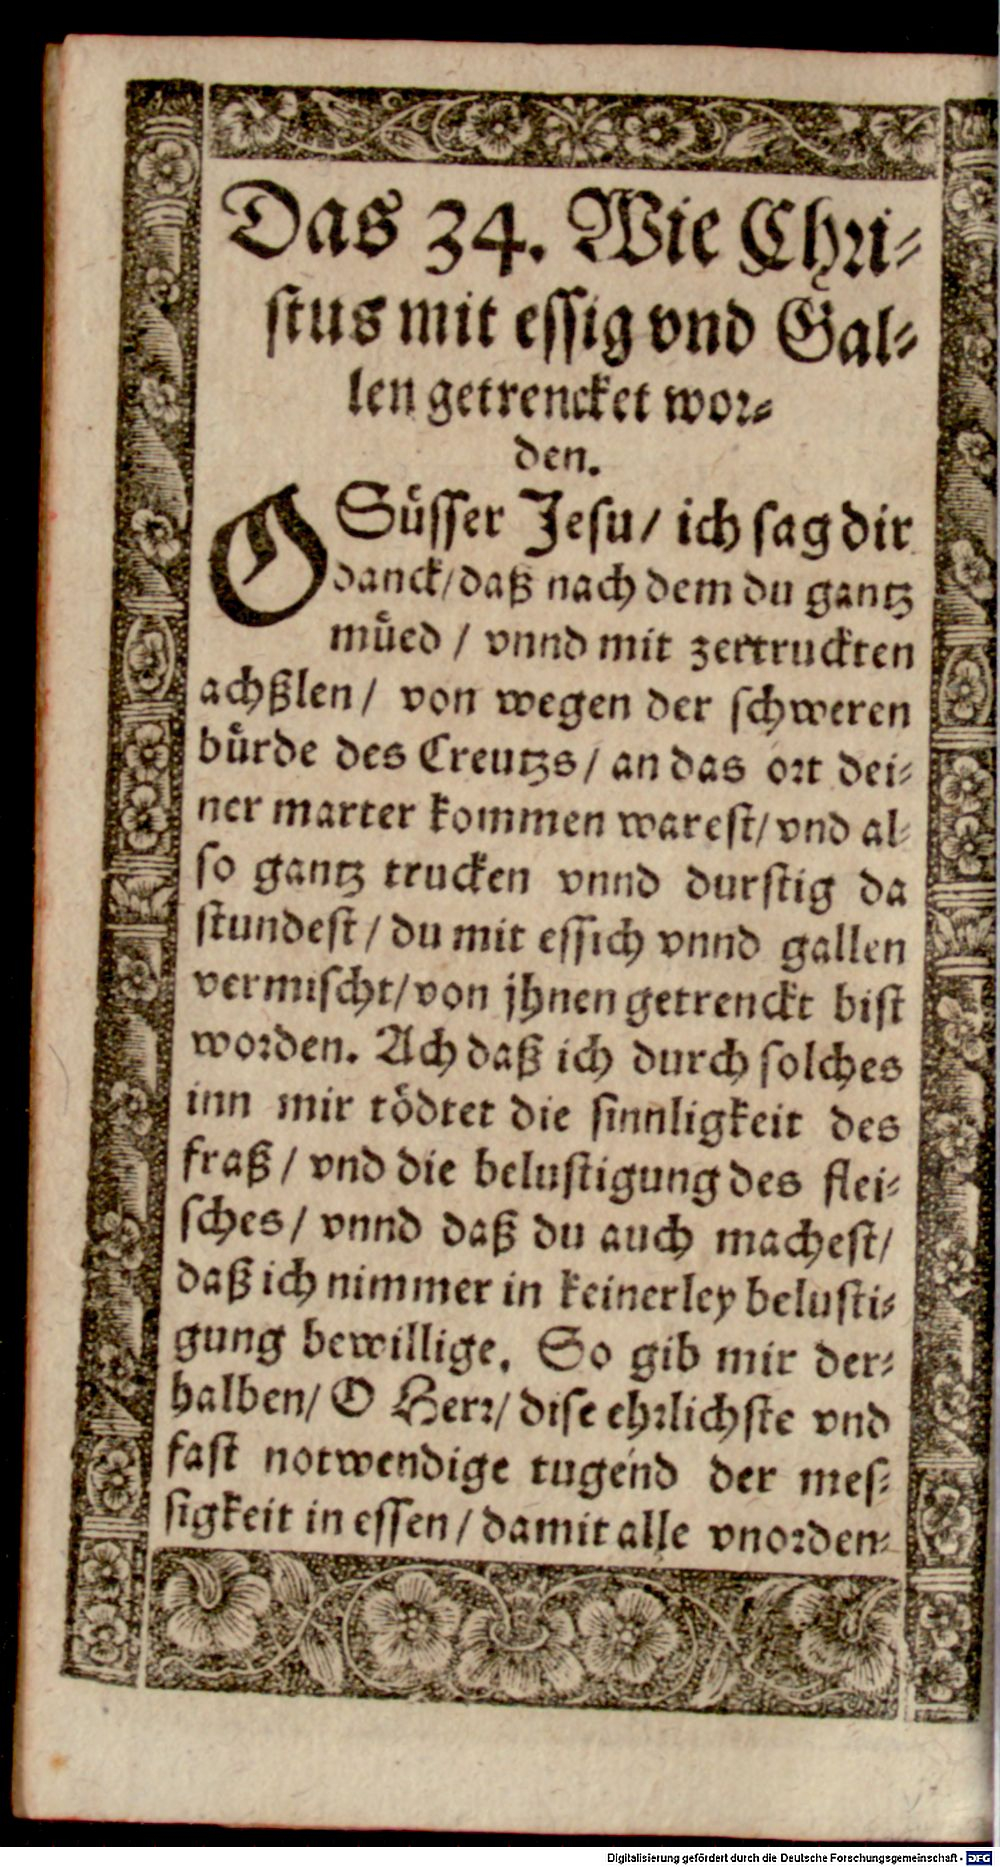 Das 34. Wie Chri-
stus mit essig vnd Gal-
len getrencket wor-
den.
O Süsser Jesu/ ich sag dir
danck/ daß nach dem du gantz
müed / vnnd mit zertruckten
achßlen/ von wegen der schweren
bürde des Creutzs/ an das ort dei-
ner marter kommen warest/ vnd al-
so gantz trucken vnnd durstig da
stundest/ du mit essich vnnd gallen
vermischt/ von jhnen getrenckt bist
worden. Ach daß ich durch solches
inn mir tödtet die sinnligkeit des
fraß/ vnd die belustigung des flei-
sches/ vnnd daß du auch machest/
daß ich nimmer in keinerley belusti-
gung bewillige. So gib mir der-
halben/ O Herr/ dise ehrlichste vnd
fast notwendige tugend der mes-
sigkeit in essen/ damit alle vnorden-
Digitalisierung gefördert durch die Deutsche Forschungsgemeinschaft - DFG